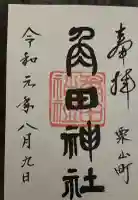 奉拝
栗山町
角田神社
令和元年八月九日